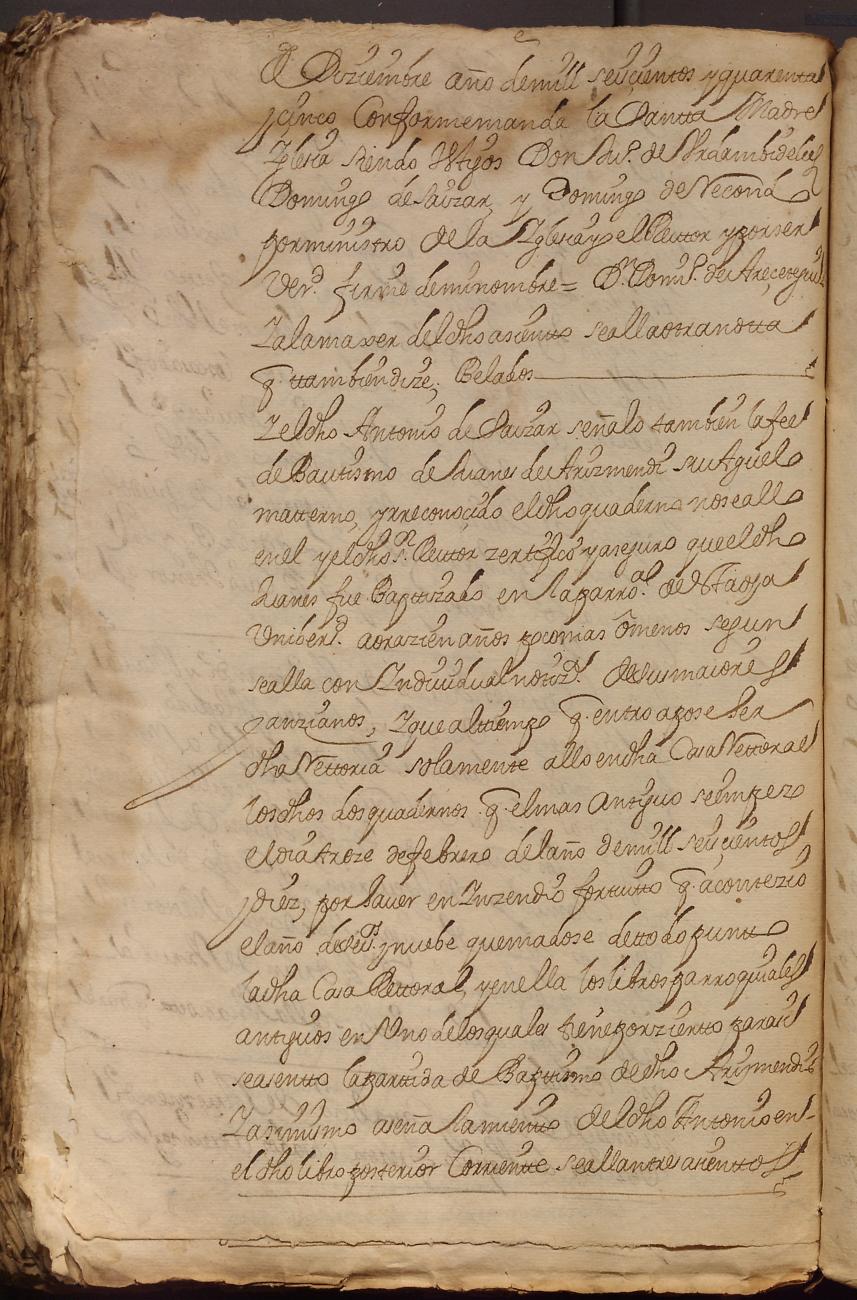 De Diziembre año de mill seiscientos y quarenta
y cinco Conforme manda la Santta Madre
Iglesia siendo ttgos Don Ju.º de
Domingo de Sauzar, y Domingo de
por ministro de la Iglesia y el Rettor y por ser
Verd. firme de mi nombre = D.n Dom.º de
Y al amarxen del dho asiento se alla otra notta
q. ttambien dize, Belados
Y el dho Antonio de Sauzar señalo tambien la fee
de Bautismo de Juanes de Arizmendi su Aguelo
matterno, y rreconocido el dho quaderno no se allo
en el y el dho s.r Rettor zertifico y aseguro que el dho
Juanes fue Bapttizado en la parro.al de sttaoja
Vniberd. aora zien años poco mas o menos segun
se alla con Yndiuidual notiz.ª de sus maiores
y anzianos, Y que al tiempo q. entro a poseher
dha Rettoria solamente allo en dha Casa Rettoral
los dhos dos quadernos q. el mas Antiguo se impezo
el dia treze de febrero del año de mill seiscientos
y diez, por hauer en Ynzendio fortuitto q. acontezio
el año de seis.tos y nuebe quemadose de ttodo puntto
la dha Casa Rettoral, y en ella los libros parroquiales
antiguos en Vno de los quales tiene por zierto para si
se asentto la parttida de Bapttismo de dho Arizmendi
Y asimismo a señalamiento del dho Antonio en
el dho libro posterior Corriente se allan tres asienttos